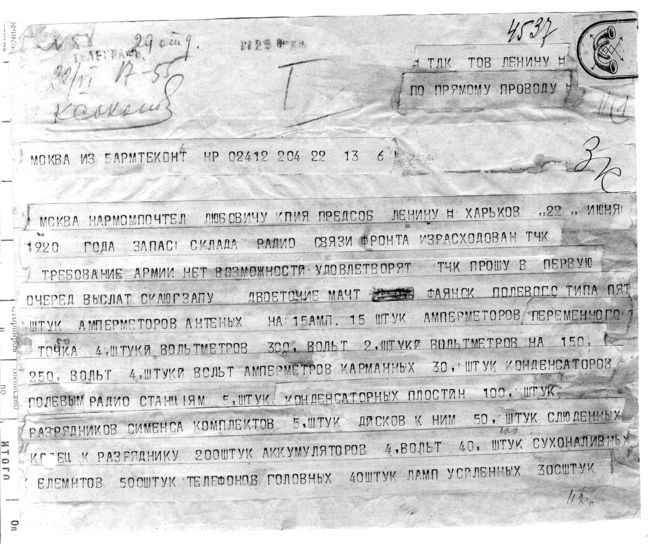 4537
29 отд.
ТЕЛЕГРАФ
22/VI 17-55
ТДК ТОВ ЛЕНИНУ Н
ПО ПРЯМОМУ ПРОВОДУ
МОСКВА ИЗ 5АРМТЕКОНТ НР 02412 204 22 13 6
МОСКВА НАРМОМПОЧТЕЛ ЛЮБОВИЧУ КПИЯ ПРЕДСОБ ЛЕНИНУ Н ХАРЬКОВ „22„ ИЮНЯ
1920 ГОДА ЗАПАС СКЛАДА РАДИО СВЯЗИ ФРОНТА ИЗРАСХОДОВАН ТЧК
ТРЕБОВАНИЕ АРМИИ НЕТ ВОЗМОЖНОСТИ УДОВЛЕТВОРЯТ ТЧК ПРОШУ В ПЕРВУЮ
ОЧЕРЕД ВЫСЛАТ СКЛЮГЗАПУ ДВОЕТОЧИЕ МАЧТ ФАЯНСК ПОЛЕВОГО ТИПА ПЯТ
ШТУК АМПЕРМЕТОРОВ АНТЕНЫХ НА 15АМП. 15 ШТУК АМПЕРМЕТОРОВ ПЕРЕМЕННОГО
ТОЧКА 4, ШТУКИ ВОЛЬТМЕТРОВ 300, ВОЛЬТ 2, ШТУКИ ВОЛЬТМЕТРОВ НА 150,
250, ВОЛЬТ 4, ШТУКИ ВОЛЬТ АМПЕРМЕТРОВ КАРМАННЫХ 30, ШТУК КОНДЕНСАТОРОВ
ПОЛЕВЫМ РАДИО СТАНЦИЯМ 5, ШТУК КОНДЕНСАТОРНЫХ ПЛОСТИН 100, ШТУК
РАЗРЯДНИКОВ СИМЕНСА КОМПЛЕКТОВ 5, ШТУК ДИСКОВ К НИМ 50, ШТУК СЛЮДЕННЫХ
КОЛЕЦ К РАЗРЯДНИКУ 200ШТУК АККУМУЛЯТОРОВ 4, ВОЛЬТ 40, ШТУК СУХОНАЛИВНЫХ
ЕЛЕМНТОВ 500ШТУК ТЕЛЕФОНОВ ГОЛОВНЫХ 40ШТУК ЛАМП УСИЛЕННЫХ 300ШТУК
ИТОГО